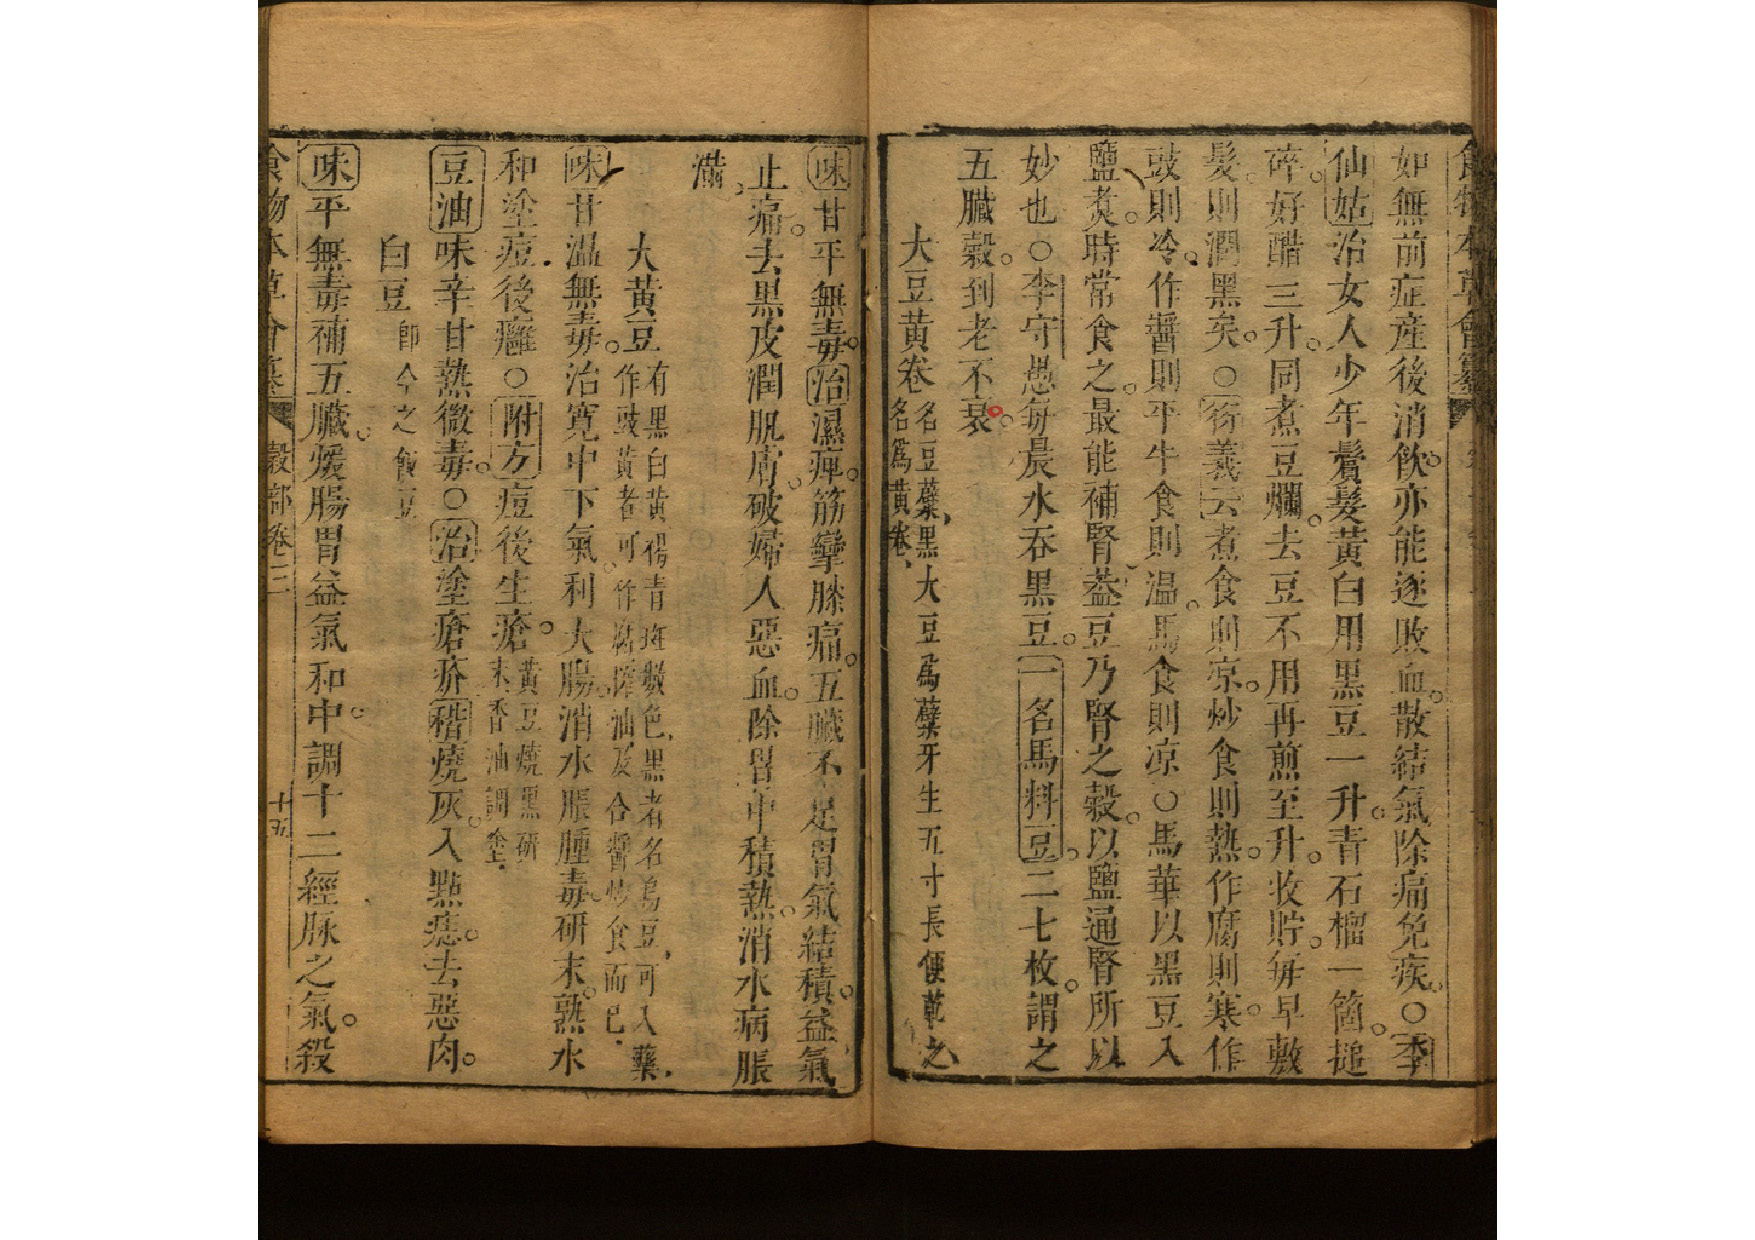 食物本草會纂
如無前症產後消飲亦能逐敗血散結氣除痛免疾○李
仙姑治女人少年鬢髮黃白用黑豆一升青石榴一箇搥
碎好醋三升同煮豆爛去豆不用再煎至升收貯每早敷
髮則潤黑矣○衍義云煮食則凉炒食則熱作腐則寒作
豉則冷作醬則平牛食則温馬食則凉○馬華以黑豆入
鹽煮時常食之最能補腎葢豆乃腎之穀以鹽通腎所以
妙也○李守愚每晨水吞黑豆一名馬料豆二七枚謂之
五臟穀到老不衰
大豆黃卷名豆蘗黑大豆爲蘗牙生五寸長便乾之
名爲黃卷
味甘平無毒治濕痺筋攣膝痛五臟不足胃氣結積益氣
止痛去黑皮潤肌膚破婦人惡血除胃中積熱消水病脹
滿
大黃豆有黑白黃褐青斑數色黑者名烏豆可入藥
作豉黃者可作腐榨油及合醬炒食而已
味甘温無毒治寛中下氣利大腸消水脹腫毒研末熟水
和塗痘後癰○附方痘後生瘡黃豆燒黑研
末香油調塗
豆油味辛甘熱微毒○治塗瘡疥稭燒灰入點痣去惡肉
白豆卽今之飯豆
味平無毒補五臟煖腸胃益氣和中調十二經脉之氣殺
食物本草會纂 穀部卷三 十五